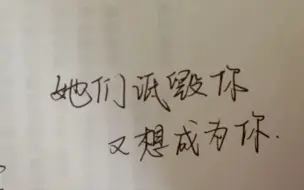 她们诋毁你
又想成为你.